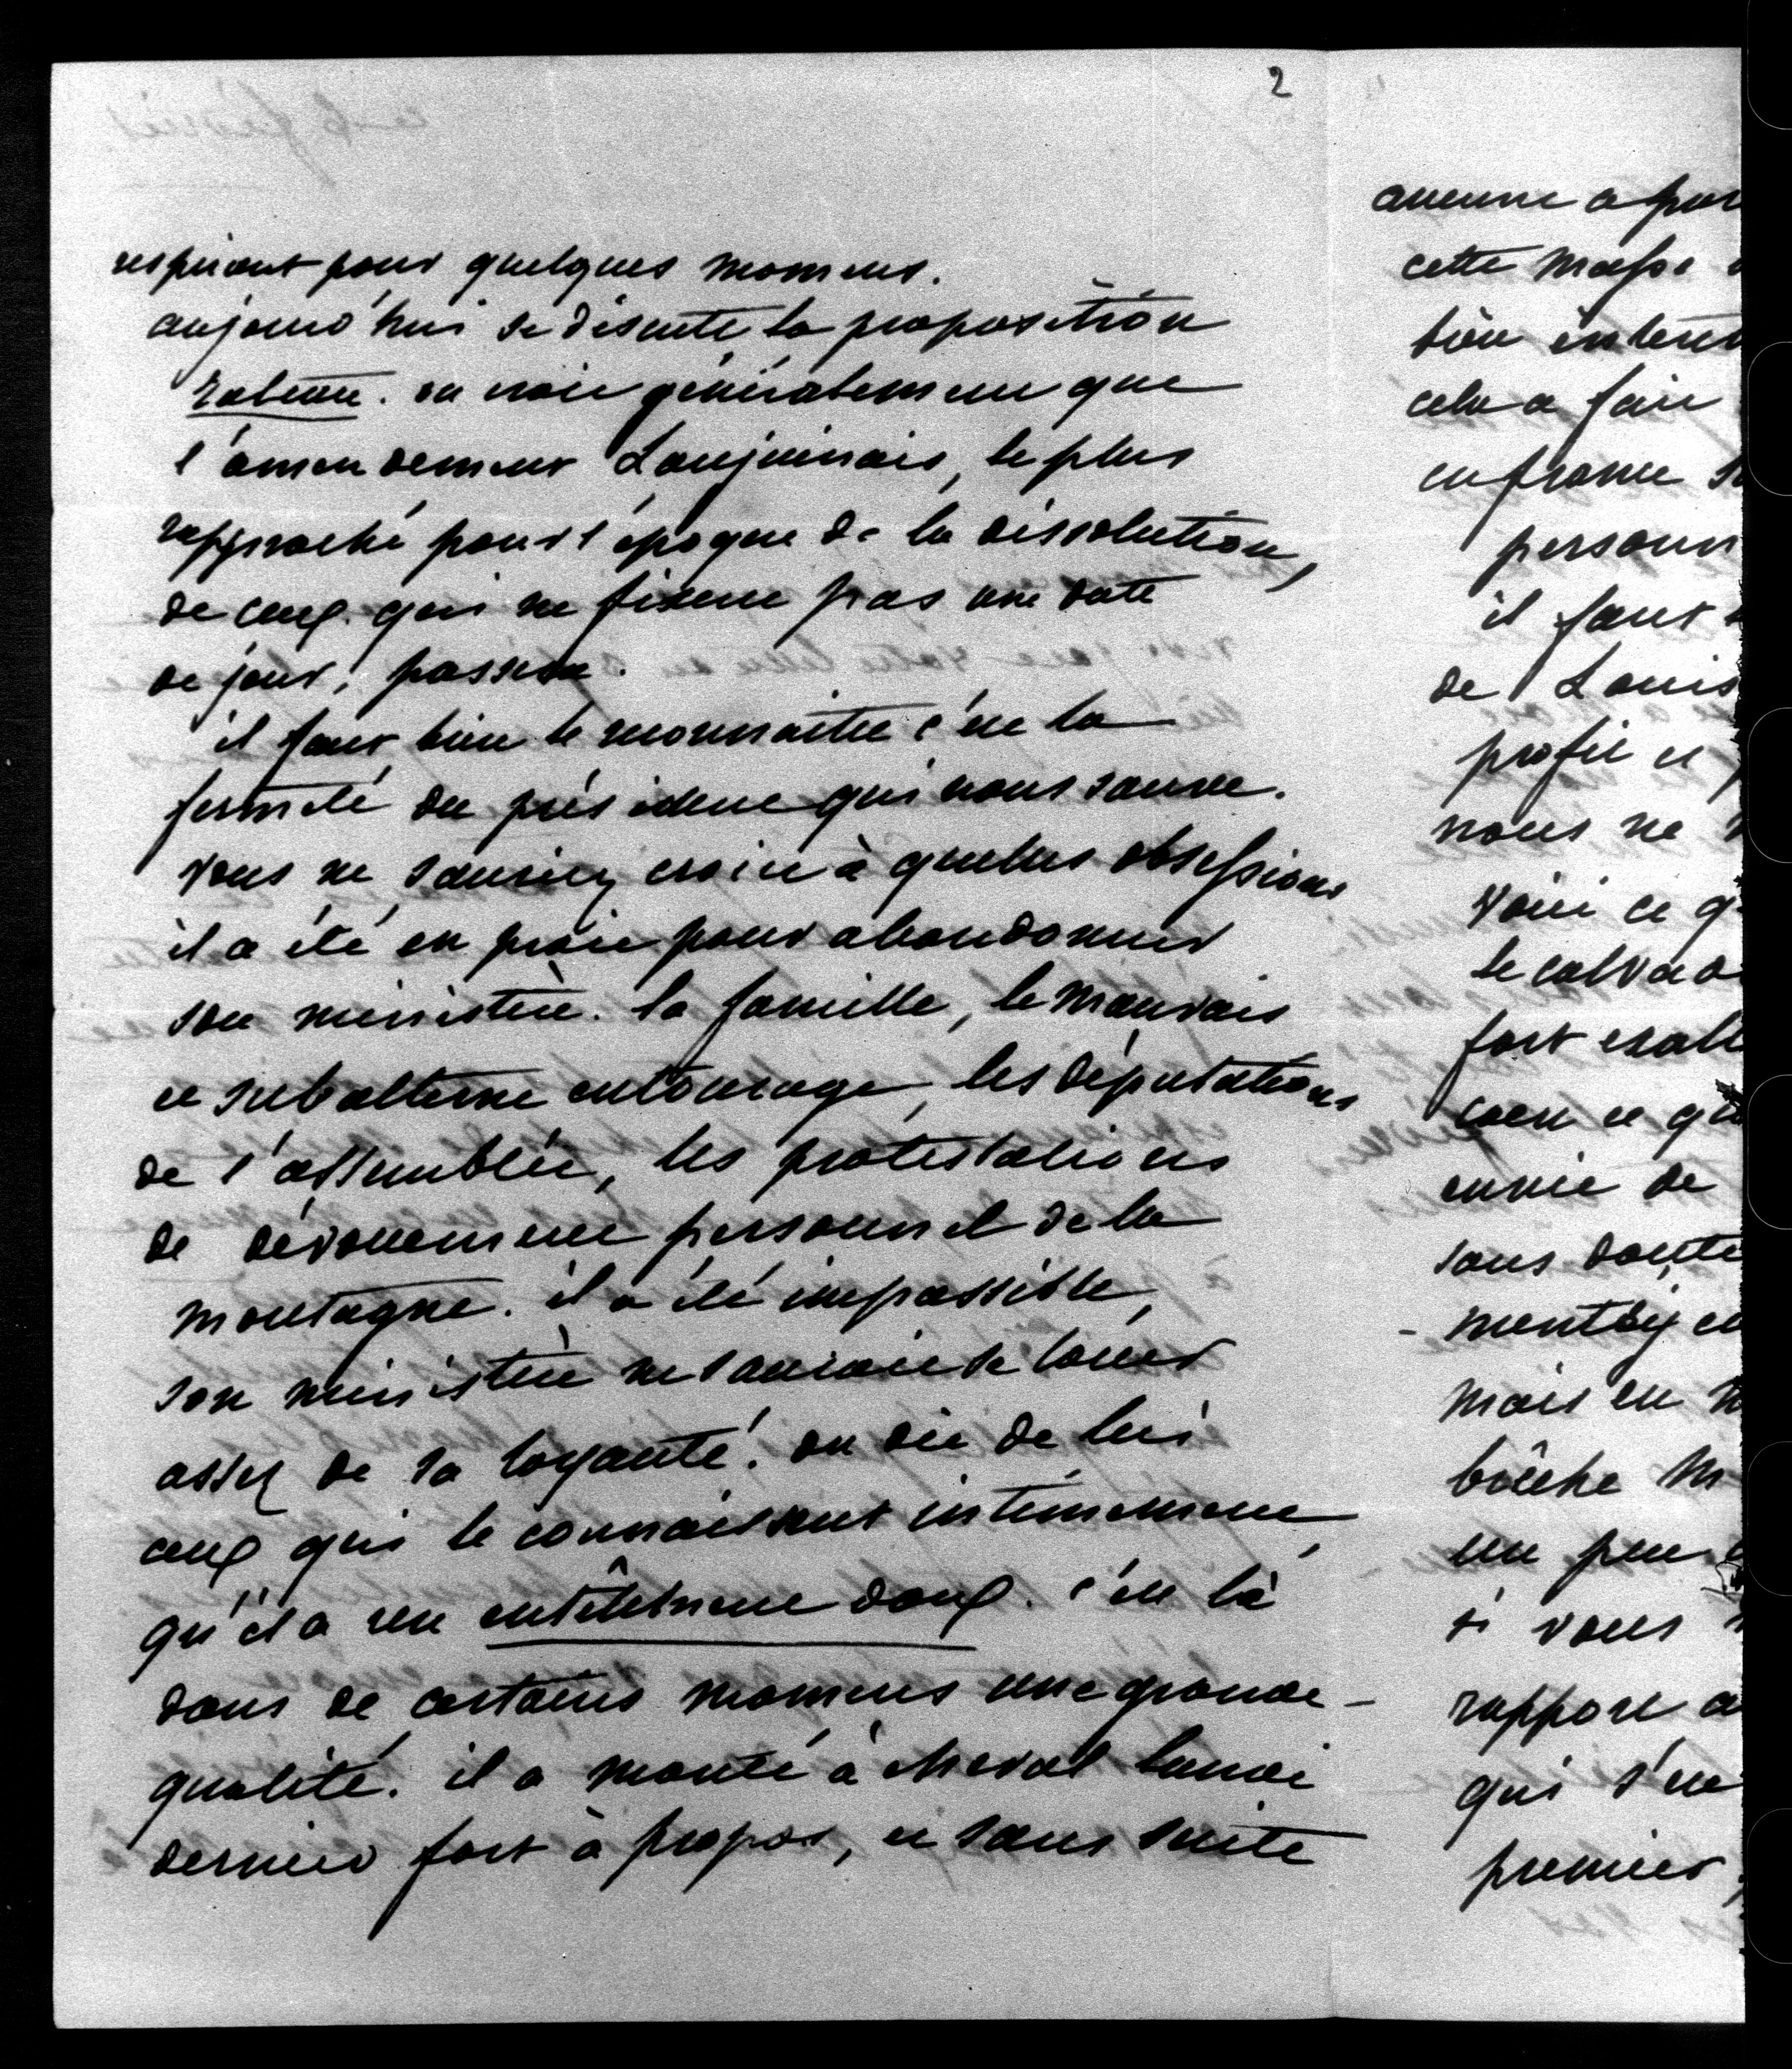 2
respirent pour quelques momens.
aujourd'hui se discute la proposition
rateau. on croit généralement que
l'amendement Lanjuinais, le plus
rapproché pour l'époque de la dissolution,
de ceux qui ne fixent pas une date
de jour, passera.
il faut bien le reconnaitre c'est la
fermeté du président qui nous sauve.
vous ne sauriez croire à quelles obsessions
il a été en proie pour abandonner
son ministère. la famille, le mauvais
et subalterne entourage, les députations
de l'assemblée, les protestations
de dévouement personnel de la
montagne. il a été impassible,
son ministère ne saurait se louer
assez de sa loyauté. on dit de lui
ceux qui le connaissent intimement,
qu'il a un entêtement doux. c'est là
dans de certains momens une grande
qualité. il a monté à cheval lundi
dernier fort à propos, et sans suite
aucune a par
cette masse
bien inten
cela a fait
en france
personn
il faut
de Louis
profit et
nous ne
voici ce q
le calvad
fort exalt
caen ce qu
envie de
sans doute
mais en
bûche
un peu
si vous
rapport a
qui s'est
premier